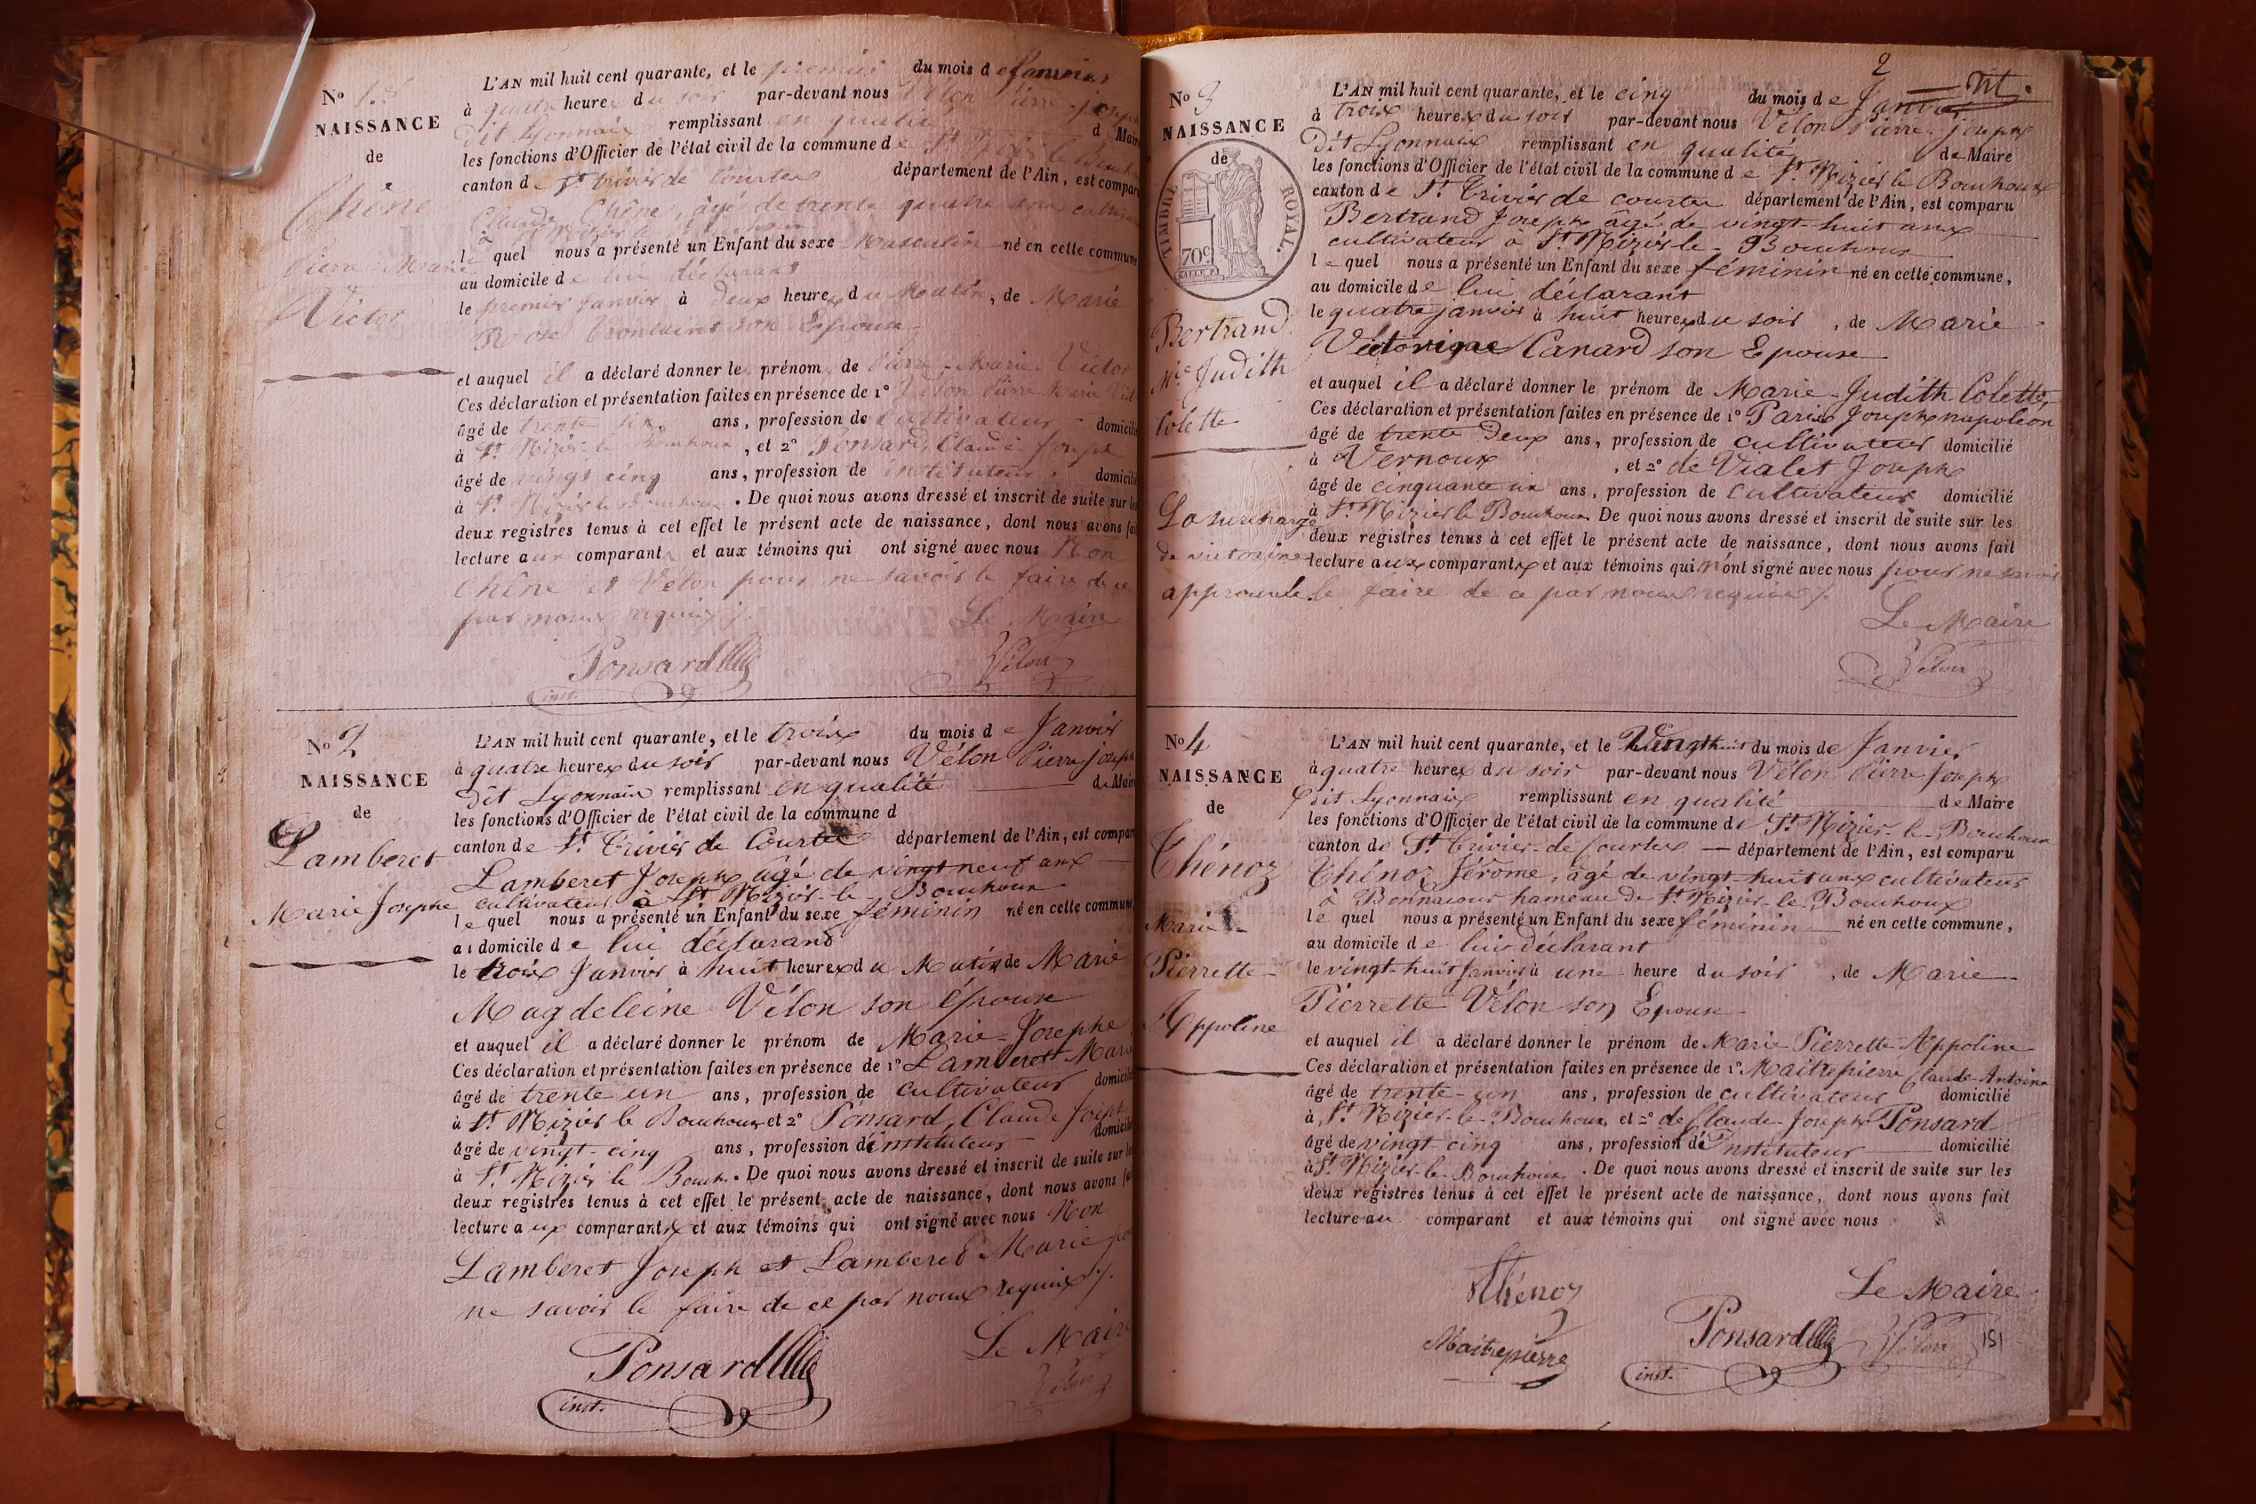 L'AN mil huit cent quarante, et le premier du mois de Janvier
No 1.er
à quatre heures du soir par-devant nous Vélon Pierre-joseph
NAISSANCE
dit Lyonnais remplissant en qualité de Maire
de
les fonctions d'Officier de l'état civil de la commune de St Nizier le Bouchoux
canton de St Trivier de Courtes département de l'Ain, est comparu
Chêne
Claude Chêne, âgé de trente quatre ans cultivateur
à St Nizier le
Pierre-Marie
le quel nous a présenté un Enfant du sexe Masculin né en cette commune
au domicile de lui déclarant
Victor
le premier janvier à deux heures du Matin, de Marie
Rose son Epouse
et auquel il a déclaré donner les prénoms de Pierre-Marie Victor
Ces déclaration et présentation faites en présence de 1º Vélon Pierre Marie
âgé de trente ans, profession de cultivateur domicilié
à St Nizier-le Bouchoux, et 2º Ponsard, Claude Joseph
âgé de vingt cinq ans, profession de instituteur domicilié
à St Nizier le Bouchoux. De quoi nous avons dressé et inscrit de suite sur les
deux registres tenus à cet effet le présent acte de naissance, dont nous avons fait
lecture aux comparants et aux témoins qui ont signé avec nous Non
Chêne et Vélon pour ne savoir le faire de ce
par nous requis /.
Le Maire
Ponsard
Vélon
inst.
No 2
L'AN mil huit cent quarante, et le trois du mois de Janvier
à quatre heures du soir par-devant nous Vélon Pierre joseph
NAISSANCE
dit Lyonnais remplissant en qualité de Maire
de
les fonctions d'Officier de l'état civil de la commune d
canton de St Trivier de Courtes département de l'Ain, est comparu
Lamberet
Lamberet Joseph, âgé de vingt neuf ans
Marie Josephe
cultivateur à St Nizier-le-Bouchoux
le quel nous a présenté un Enfant du sexe féminin né en cette commune
au domicile de lui déclarant
le trois Janvier à huit heures du Matin de Marie
Magdeleine Vélon son épouse
et auquel il a déclaré donner le prénom de Marie-Josephe
Ces déclaration et présentation faites en présence de 1º Lamberet Marie
âgé de trente un ans, profession de cultivateur domicilié
à St Nizier le Bouchoux et 2º Ponsard, Claude Joseph
âgé de vingt-cinq ans, profession d'instituteur domicilié
à St Nizier le Bouch. De quoi nous avons dressé et inscrit de suite sur les
deux registres tenus à cet effet le présent acte de naissance, dont nous avons fait
lecture aux comparants et aux témoins qui ont signé avec nous Non
Lamberet Joseph et Lamberet Marie pour
ne savoir le faire de ce par nous requis /.
Le Maire
Ponsard
Vélon
inst.
2
No 3
L'AN mil huit cent quarante, et le cinq du mois de Janvier
NAISSANCE
à trois heures du soir par-devant nous Vélon Pierre-joseph
de
Dit Lyonnais remplissant en qualité de Maire
TIMBRE ROYAL.
70c
les fonctions d'Officier de l'état civil de la commune de St Nizier le Bouchoux
canton de St Trivier de courtes département de l'Ain, est comparu
Bertrand Joseph âgé de vingt-huit ans
cultivateur à St Nizier-le-Bouchoux
le quel nous a présenté un Enfant du sexe féminin né en cette commune,
au domicile de lui déclarant
le quatre janvier à huit heures du soir, de Marie
Bertrand
Victorine Canard son Epouse
Mie Judith
et auquel il a déclaré donner le prénom de Marie-Judith Colette,
Colette
Ces déclaration et présentation faites en présence de 1º Paris Joseph napoléon
âgé de trente deux ans, profession de cultivateur domicilié
à Vernoux, et 2º de Vialet Joseph
âgé de cinquante un ans, profession de cultivateur domicilié
La surcharge
à St Nizier le Bouchoux De quoi nous avons dressé et inscrit de suite sur les
deux registres tenus à cet effet le présent acte de naissance, dont nous avons fait
de victorine
lecture aux comparants et aux témoins qui n'ont signé avec nous pour ne savoir
approuvée.
le faire de ce par nous requis /.
Le Maire
Vélon
No 4
L'AN mil huit cent quarante, et le Vingt huit du mois de Janvier
NAISSANCE
à quatre heures du soir par-devant nous Vélon Pierre Joseph
de
dit Lyonnais remplissant en qualité de Maire
les fonctions d'Officier de l'état civil de la commune de St Nizier-le-Bouchoux
canton de St Trivier-de Courtes département de l'Ain, est comparu
Thénoz
Thénoz Jérome, âgé de vingt-huit ans cultivateur
à hameau de St Nizier-le-Bouchoux
Marie
le quel nous a présenté un Enfant du sexe féminin né en cette commune,
au domicile de lui déclarant
Pierrette
le vingt-huit janvier à une heure du soir, de Marie
Pierrette Vélon son Epouse
Appoline
et auquel il a déclaré donner le prénom de Marie Pierrette Appoline
Ces déclaration et présentation faites en présence de 1º Maitrepierre Claude-Antoine
âgé de trente-un ans, profession de cultivateur domicilié
à St Nizier-le-Bouchoux et 2º de Claude-Joseph Ponsard
âgé de vingt cinq ans, profession d'Instituteur domicilié
à St Nizier-le-Bouchoux. De quoi nous avons dressé et inscrit de suite sur les
deux registres tenus à cet effet le présent acte de naissance, dont nous avons fait
lecture au comparant et aux témoins qui ont signé avec nous
Thénoz
Le Maire
Maitrepierre
Ponsard
Vélon
inst.
151